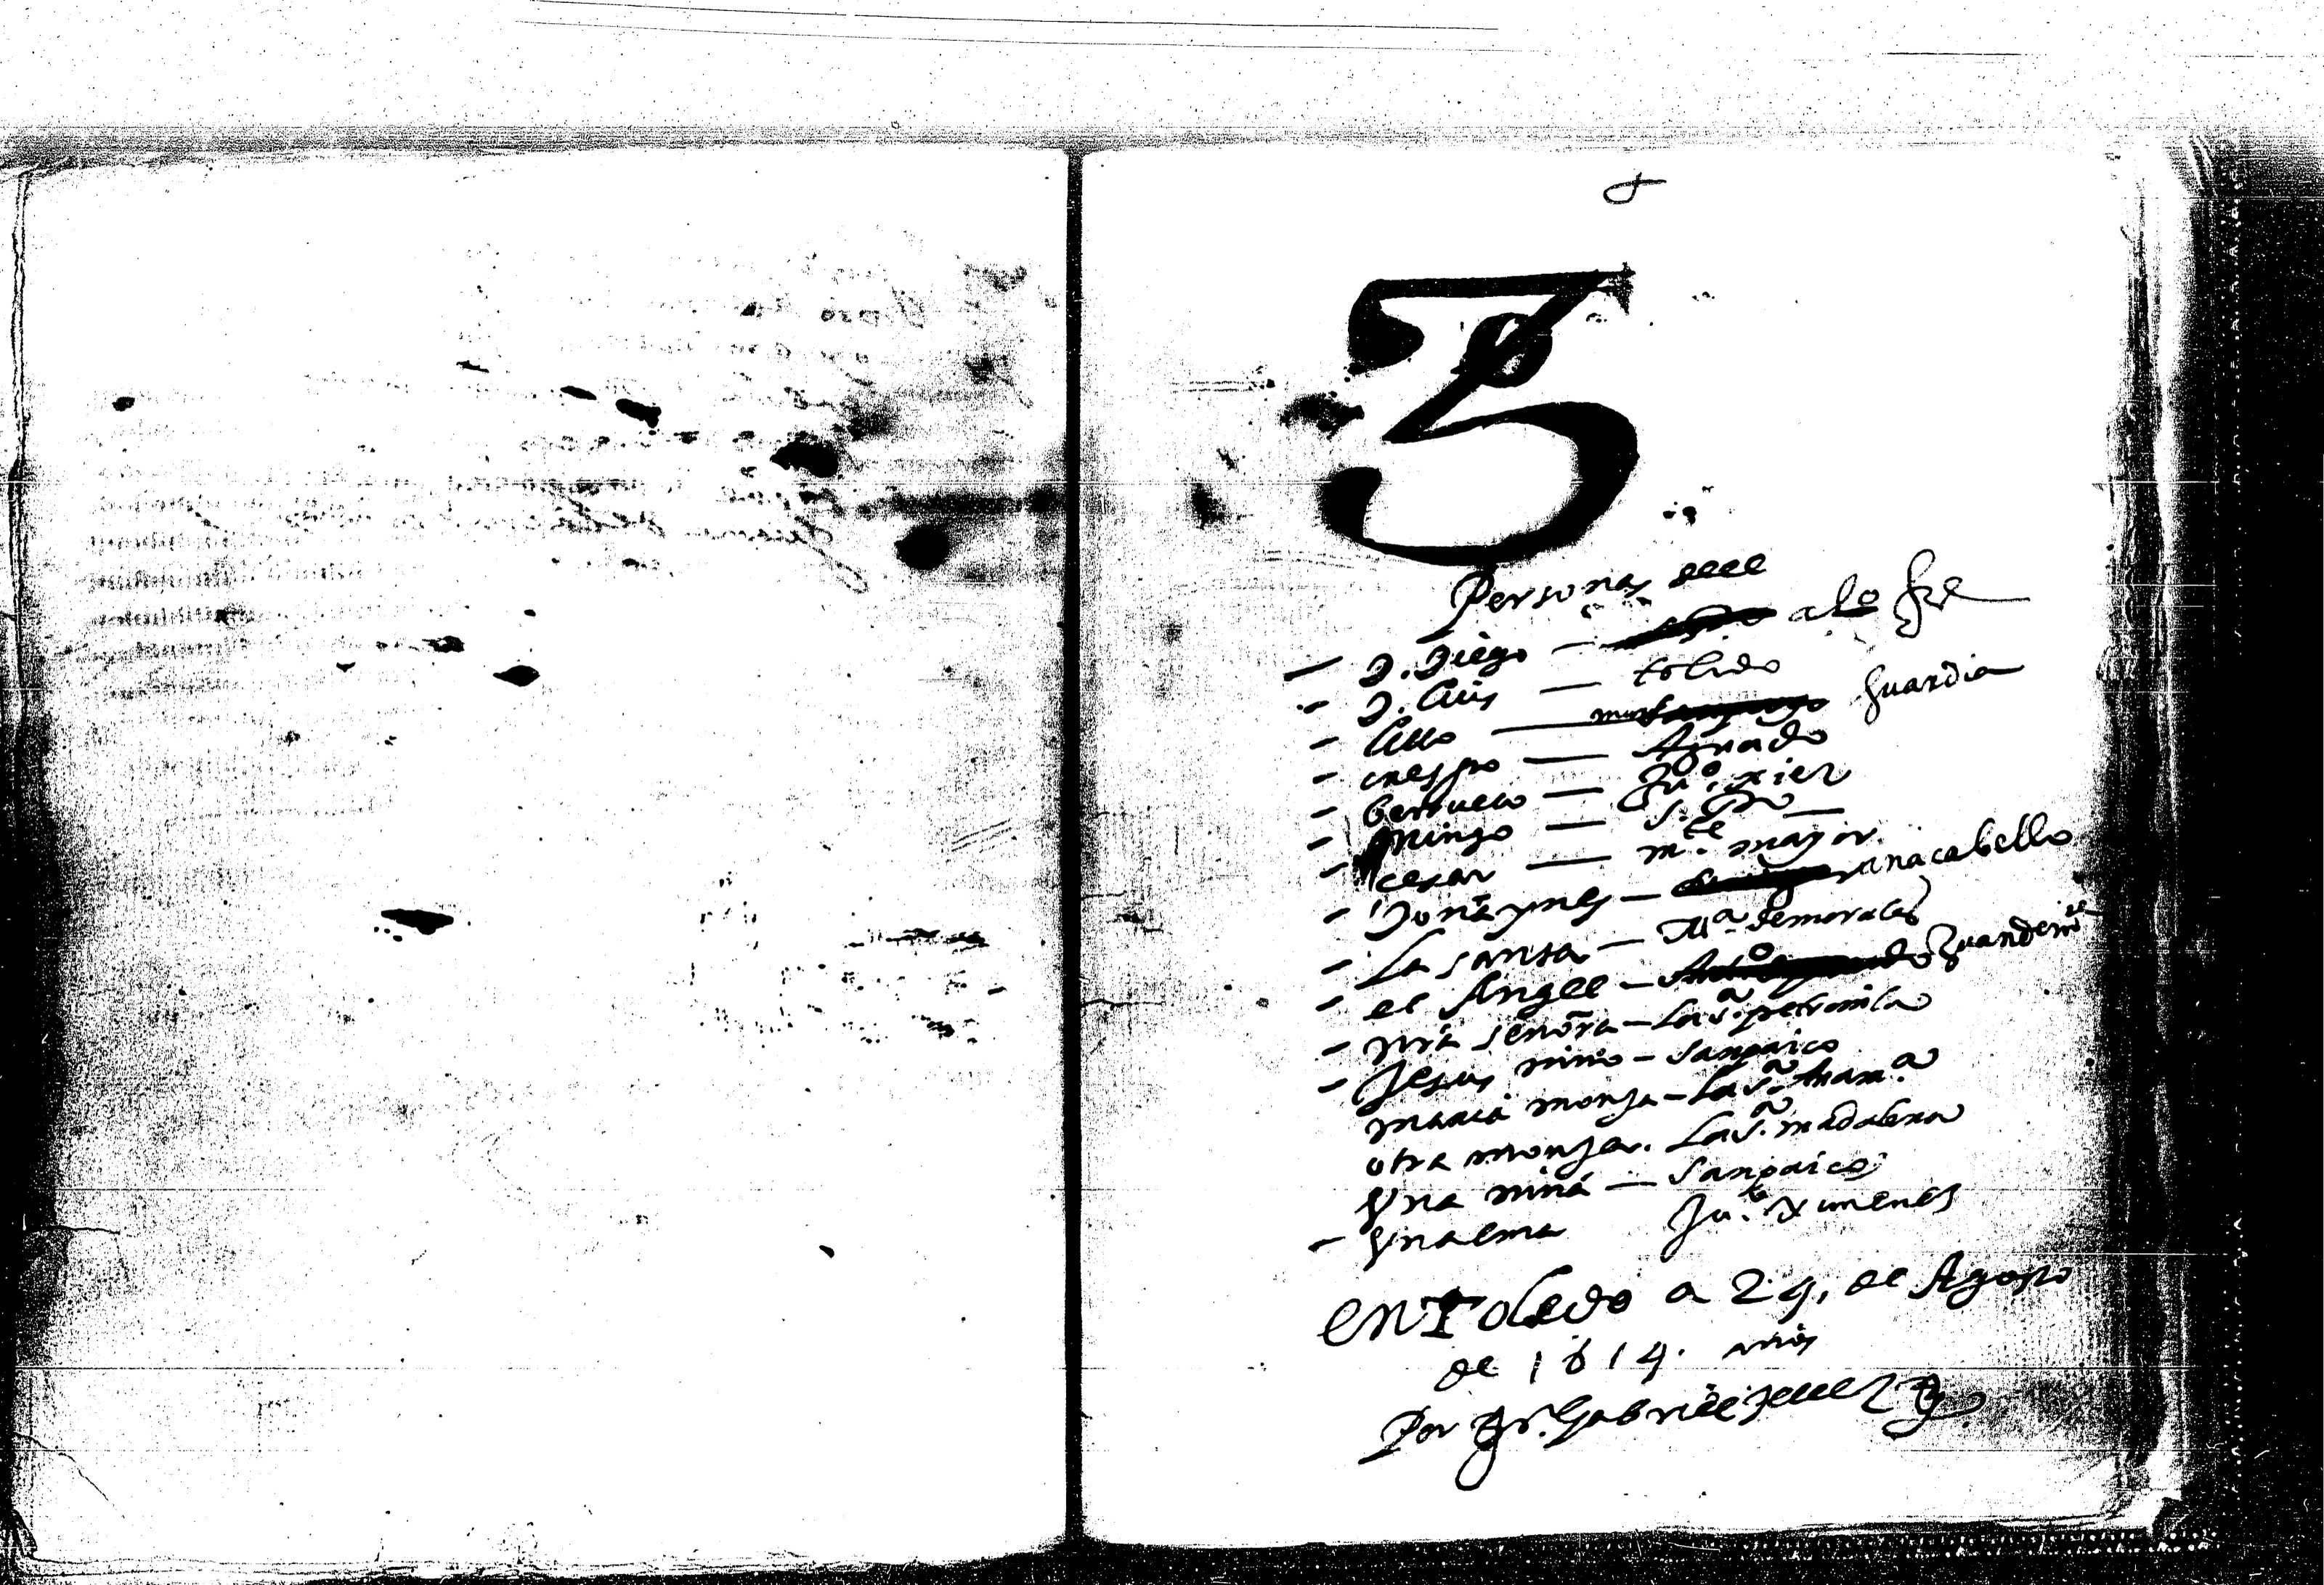 3
Personas dell
D. Diego — alofre
D. Luis — toledo
Lillo — guardia
crespo — Aguado
berrueco — Ju.º xier
mingo — S. Po
cesar — m.te mayor
Doña ynes — ana cabello
La santa — M.ª de morales
el Angel — Juan de
nra señora — la s.ª petronila
Jesus niño — san paico
maria monja — la s.ª Ana m.ª
otra monja. la s.ª madalena
Vna niña — San paico
Vna lma Ju.º Ximenes
en Toledo a 24, de Agosto
de 1614. años
Por fr. Gabriel Tellez